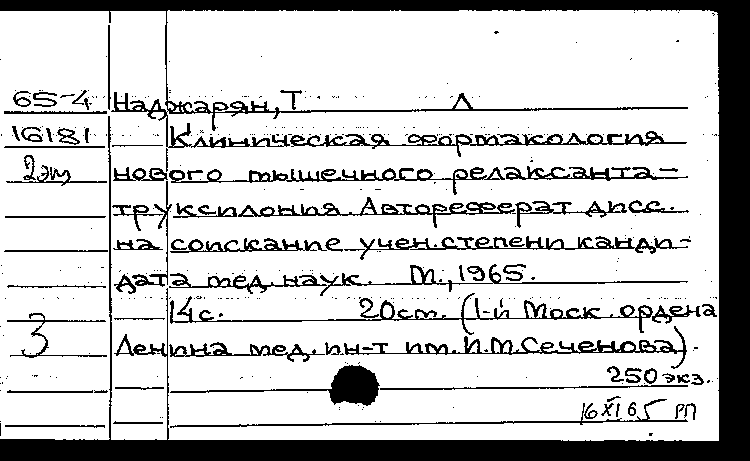 65-4 Наджарян, Т Л
16181 Клиническая фармакология
2эк нового мышечного релаксанта-
труксилония. Автореферат дисс.
на соискание учен. степени канди-
дата мед. наук. М., 1965.
14с. 20см. (1-й Моск. ордена
3 Ленина мед. ин-т им. И.М. Сеченова).
250 экз.
16 XI 65 РП